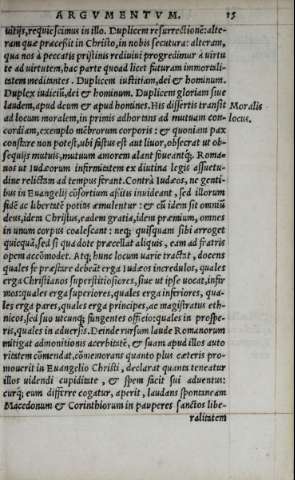 ARGVMENTVM. 15
uitijs, requiescimus in illo. Duplicem resurrectionē: alte-
ram quæ præcessit in Christo, in nobis secutura: alteram,
qua nos à peccatis pristinis rediuiui progredimur à uirtu
te ad uirtutem, hac parte quoad licet futuram immortali-
tatem meditantes. Duplicem iustitiam, dei & hominum.
Duplex iudiciū, dei & hominum. Duplicem gloriam siue
laudem, apud deum & apud homines. His dissertis transit
Moralis
ad locum moralem, in primis adhortans ad mutuam con-
locus.
cordiam, exemplo mēbrorum corporis: & quoniam pax
constare non potest, ubi fastus est aut liuor, obsecrat ut ob-
sequijs mutuis, mutuum amorem alant foueantq́;. Roma-
nos ut Iudæorum infirmitatem ex diutina legis assuetu-
dine relictam ad tempus ferant. Contrà Iudæos, ne genti-
bus in Euangelij cōsortium ascitis inuideant, sed illorum
fidē ac libertatē potius æmulentur: & cū idem sit omniū
deus, idem Christus, eadem gratia, idem præmium, omnes
in unum corpus coalescant: neq; quisquam sibi arroget
quicquā, sed si qua dote præcellat aliquis, eam ad fratris
opem accōmodet. Atq; hunc locum uarie tractat, docens
quales se præstare debeāt erga Iudæos incredulos, quales
erga Christianos superstitiosiores, siue ut ipse uocat, infir
mos: quales erga superiores, quales erga inferiores, qua-
les erga pares, quales erga principes, ac magistratus eth-
nicos, sed suo utcunq; fungentes officio: quales in prospe-
ris, quales in aduersis. Deinde rursum laude Romanorum
mitigat admonitionis acerbitatē, & suam apud illos auto
ritatem cōmendat, cōmemorans quanto plus cæteris pro-
mouerit in Euangelio Christi, declarat quanta teneatur
illos uidendi cupiditate, & spem facit sui aduentus:
curq́; eum differre cogatur, aperit, laudans spontaneam
Macedonum & Corinthiorum in pauperes sanctos libe-
ralitatem